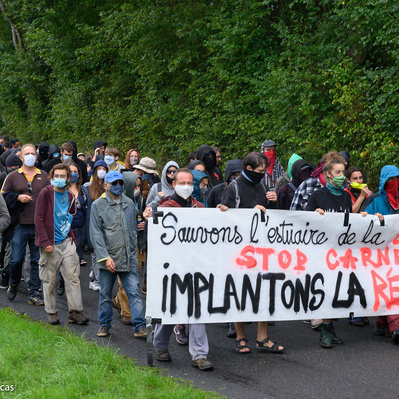 Sauvons l'estuaire de la
STOP CARN
IMPLANTONS LA RÉ
cas